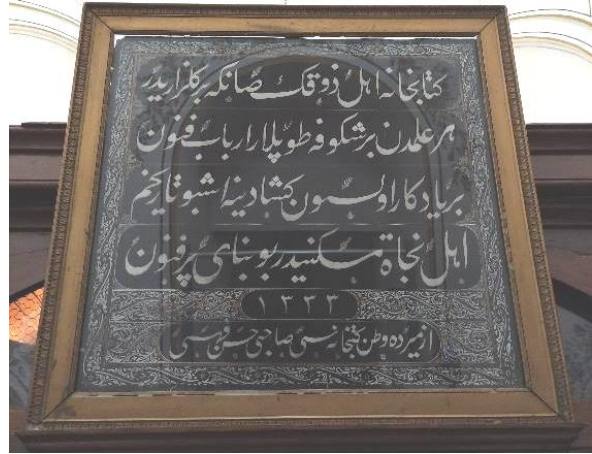 كتابخانه اهل ذوقك صانكه بر گلزاريدر
هر علمدن بر شكوفه طوپلار ارباب فنون
بر يادكار اولسون كشادينه اشبو تاريخم
اهل نجاة مسكنيدر بو بناى پر فنون
١٣٢٣
ازميرده وطن كتبخانه سى صاحبى حسن فوزى